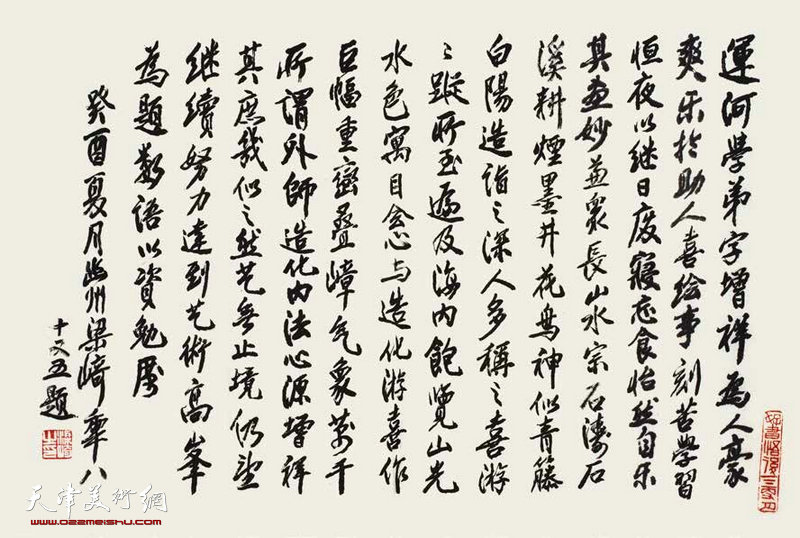 運河學弟字增祥為人豪
爽乐於助人喜绘事刻苦學習
恒夜以继日废寝忘食怡然自乐
其画妙并眾長山水宗石濤石
溪耕煙墨井花鸟神似青籐
白陽造诣之深人多稱之喜游
之踪所至遍及海内飽覽山光
水色寓目会心与造化游喜作
巨幅重巒叠嶂气象萬千
所謂外師造化内法心源增祥
其庶幾似之然艺無止境仍望
继續努力達到艺術高峯
為題数語以資勉勵
癸酉夏月幽州梁崎年八
十又五題
天津美術網
www.022meishu.com